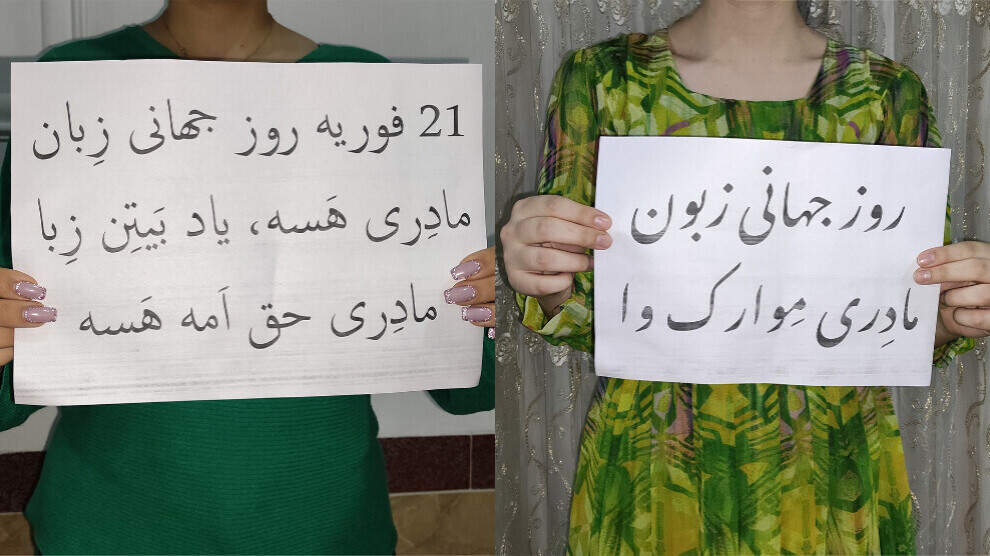 21 فوریه روز جهانی زِبان
مادِری هَسه، یاد بَیتِن زِبا
مادِری حق اَمه هَسه
روز جهانی زبون
مادِری مِوارک وا